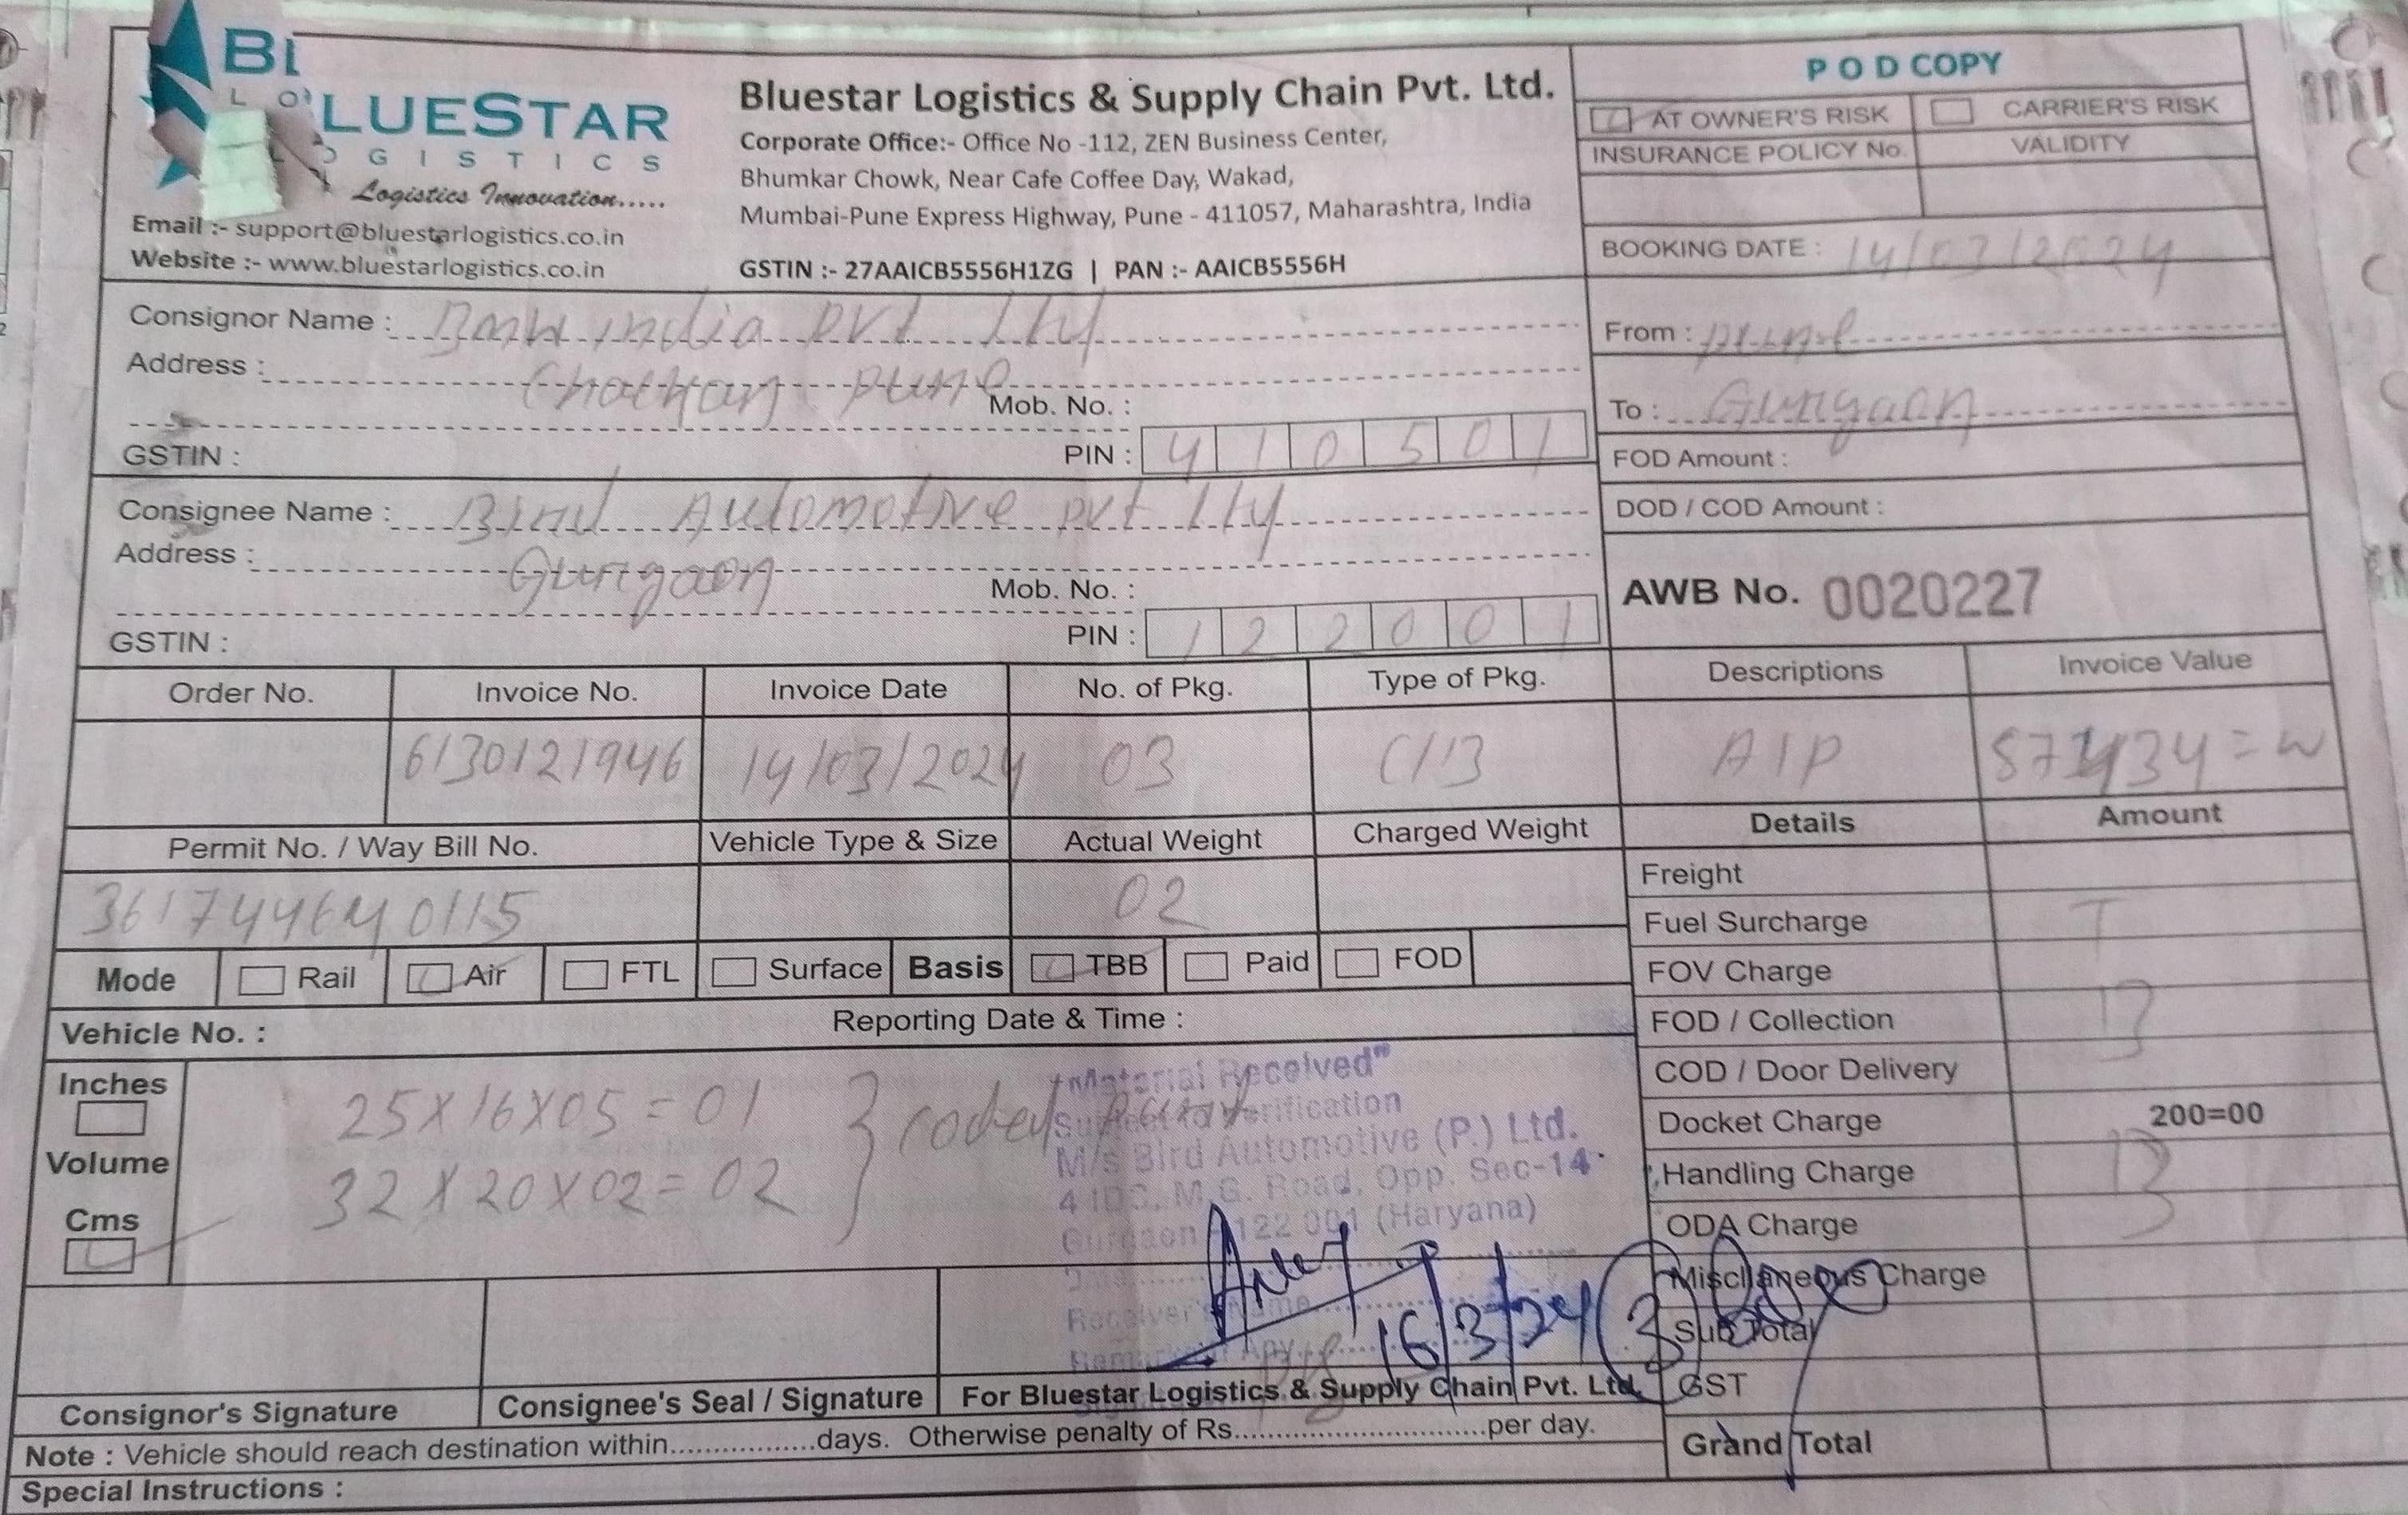 BLUESTAR
LOGISTICS
Logistics Innovation.....
Email :- support@bluestarlogistics.co.in
Website :- www.bluestarlogistics.co.in
Bluestar Logistics & Supply Chain Pvt. Ltd.
Corporate Office:- Office No -112, ZEN Business Center,
Bhumkar Chowk, Near Cafe Coffee Day, Wakad,
Mumbai-Pune Express Highway, Pune - 411057, Maharashtra, India
GSTIN :- 27AAICB5556H1ZG | PAN :- AAICB5556H
POD COPY
AT OWNER'S RISK CARRIER'S RISK
INSURANCE POLICY No. VALIDITY
BOOKING DATE : 14/03/2024
Consignor Name : india pvt ltd
Address : Chakan pune
Mob. No. :
GSTIN : PIN : 410501
From : pune
To : Gurgaon
FOD Amount :
DOD / COD Amount :
Consignee Name : Bird Automotive pvt ltd
Address : Gurgaon
Mob. No. :
GSTIN : PIN : 122001
AWB No. 0020227
Order No. Invoice No. Invoice Date No. of Pkg. Type of Pkg. Descriptions Invoice Value
6130121946 14/03/2024 03 C/B A/P
Permit No. / Way Bill No. Vehicle Type & Size Actual Weight Charged Weight Details Amount
361744640115 02
Freight
Fuel Surcharge T
FOV Charge
FOD / Collection B
COD / Door Delivery
Docket Charge 200=00
Handling Charge B
ODA Charge
Miscllaneous Charge
Sub Total
GST
Grand Total
Mode Rail Air FTL Surface Basis TBB Paid FOD
Vehicle No. : Reporting Date & Time :
Inches
Volume
Cms
25X16X05=01
32X20X02=02
"Material Received"
Subject to Verification
M/s Bird Automotive (P.) Ltd.
4 IDC, M.G. Road, Opp. Sec-14
Gurgaon - 122 001 (Haryana)
Receiver's Name
16/3/24 (3) box
Consignor's Signature Consignee's Seal / Signature For Bluestar Logistics & Supply Chain Pvt. Ltd.
Note : Vehicle should reach destination within.................days. Otherwise penalty of Rs..............................per day.
Special Instructions :